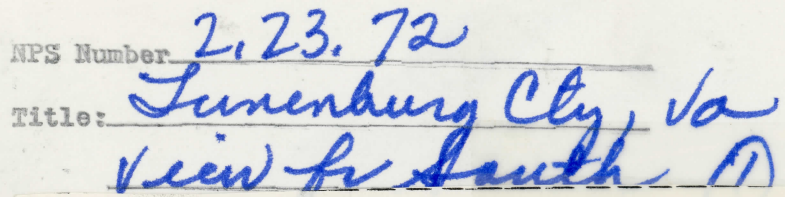 NPS Number 2.23.72
Title: Lunenburg Cty, Va
View fr South 1